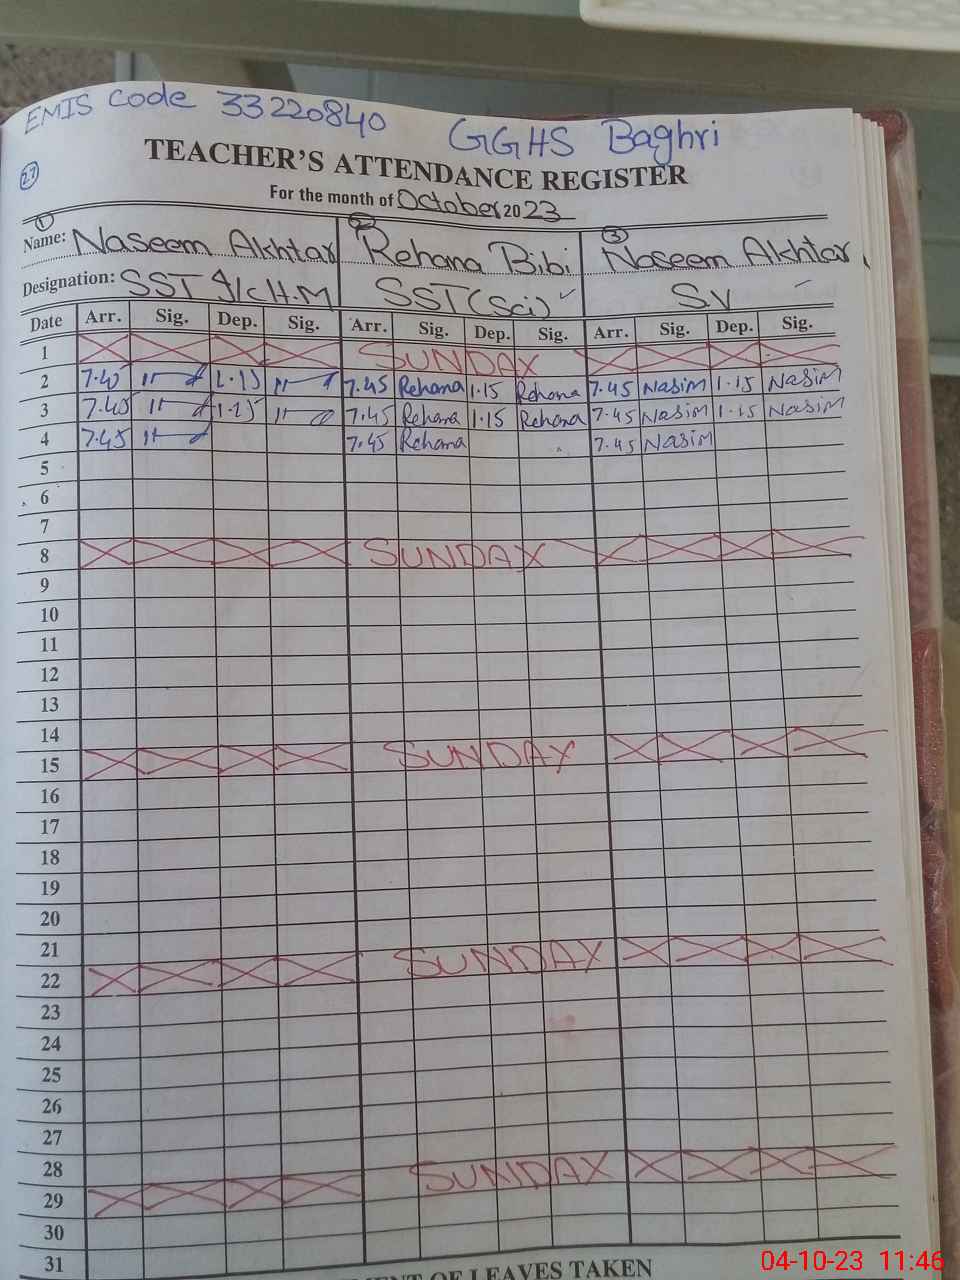 EMIS Code 33220840 GGHS Baghri
27
TEACHER'S ATTENDANCE REGISTER
For the month of October 2023
1 2 3
Name: Naseem Akhtar Rehana Bibi Naseem Akhtar
Designation: SST I/C H.M SST (Sci) SV
Date Arr. Sig. Dep. Sig. Arr. Sig. Dep. Sig. Arr. Sig. Dep. Sig.
1 SUNDAY
2 7.45 1.15 7.45 Rehana 1.15 Rehana 7.45 Nasim 1.15 Nasim
3 7.45 1.15 7.45 Rehana 1.15 Rehana 7.45 Nasim 1.15 Nasim
4 7.45 7.45 Rehana 7.45 Nasim
5
6
7
8 SUNDAY
9
10
11
12
13
14
15 SUNDAY
16
17
18
19
20
21
22 SUNDAY
23
24
25
26
27
28
29 SUNDAY
30
31
OF LEAVES TAKEN
04-10-23 11:46